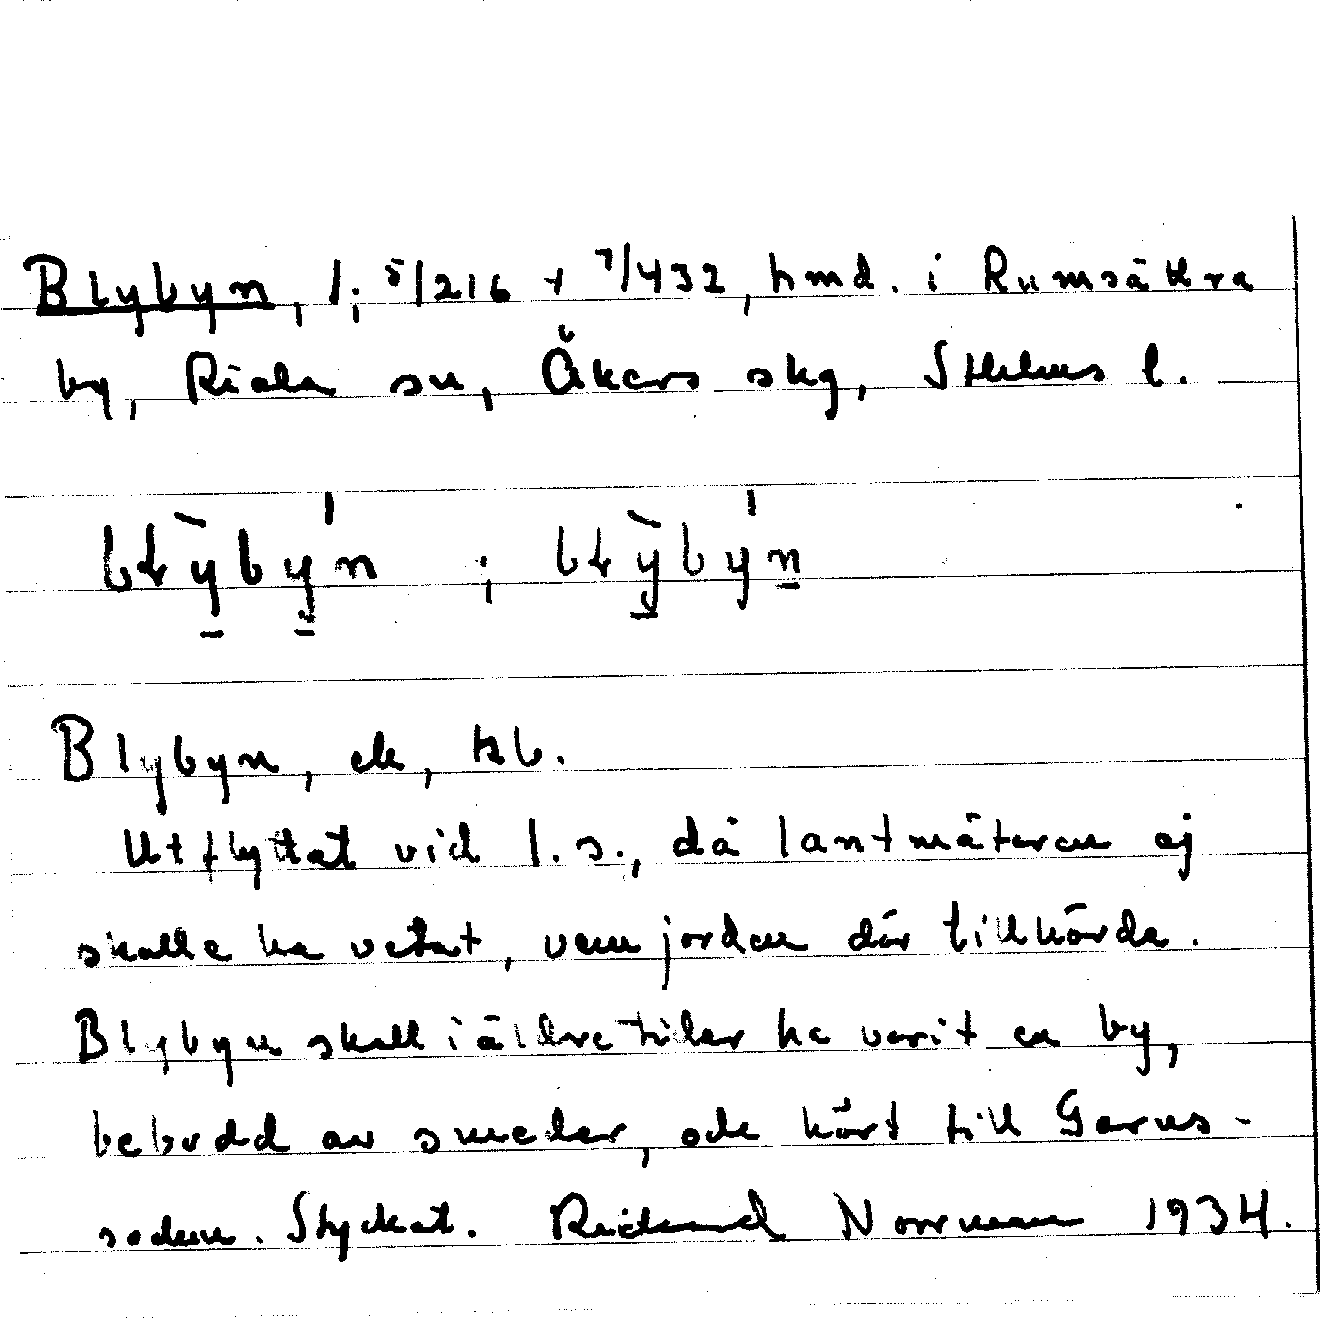 Blybyn, 1; 5/216 + 7/432, hmd. i Rumsättra
by, Riala sn, Åkers skg, Sthlms l.
Blybyn, ek, kb.
Utflyttat vid l.s., då lantmätaren ej
skall e ha vetat, vem jorden där tillhörde.
Blybyn skall i äldre tider ha varit en by,
bebodd av smeder, och hört till Garns-
soden. Styckat. Rickard Norrman 1934.